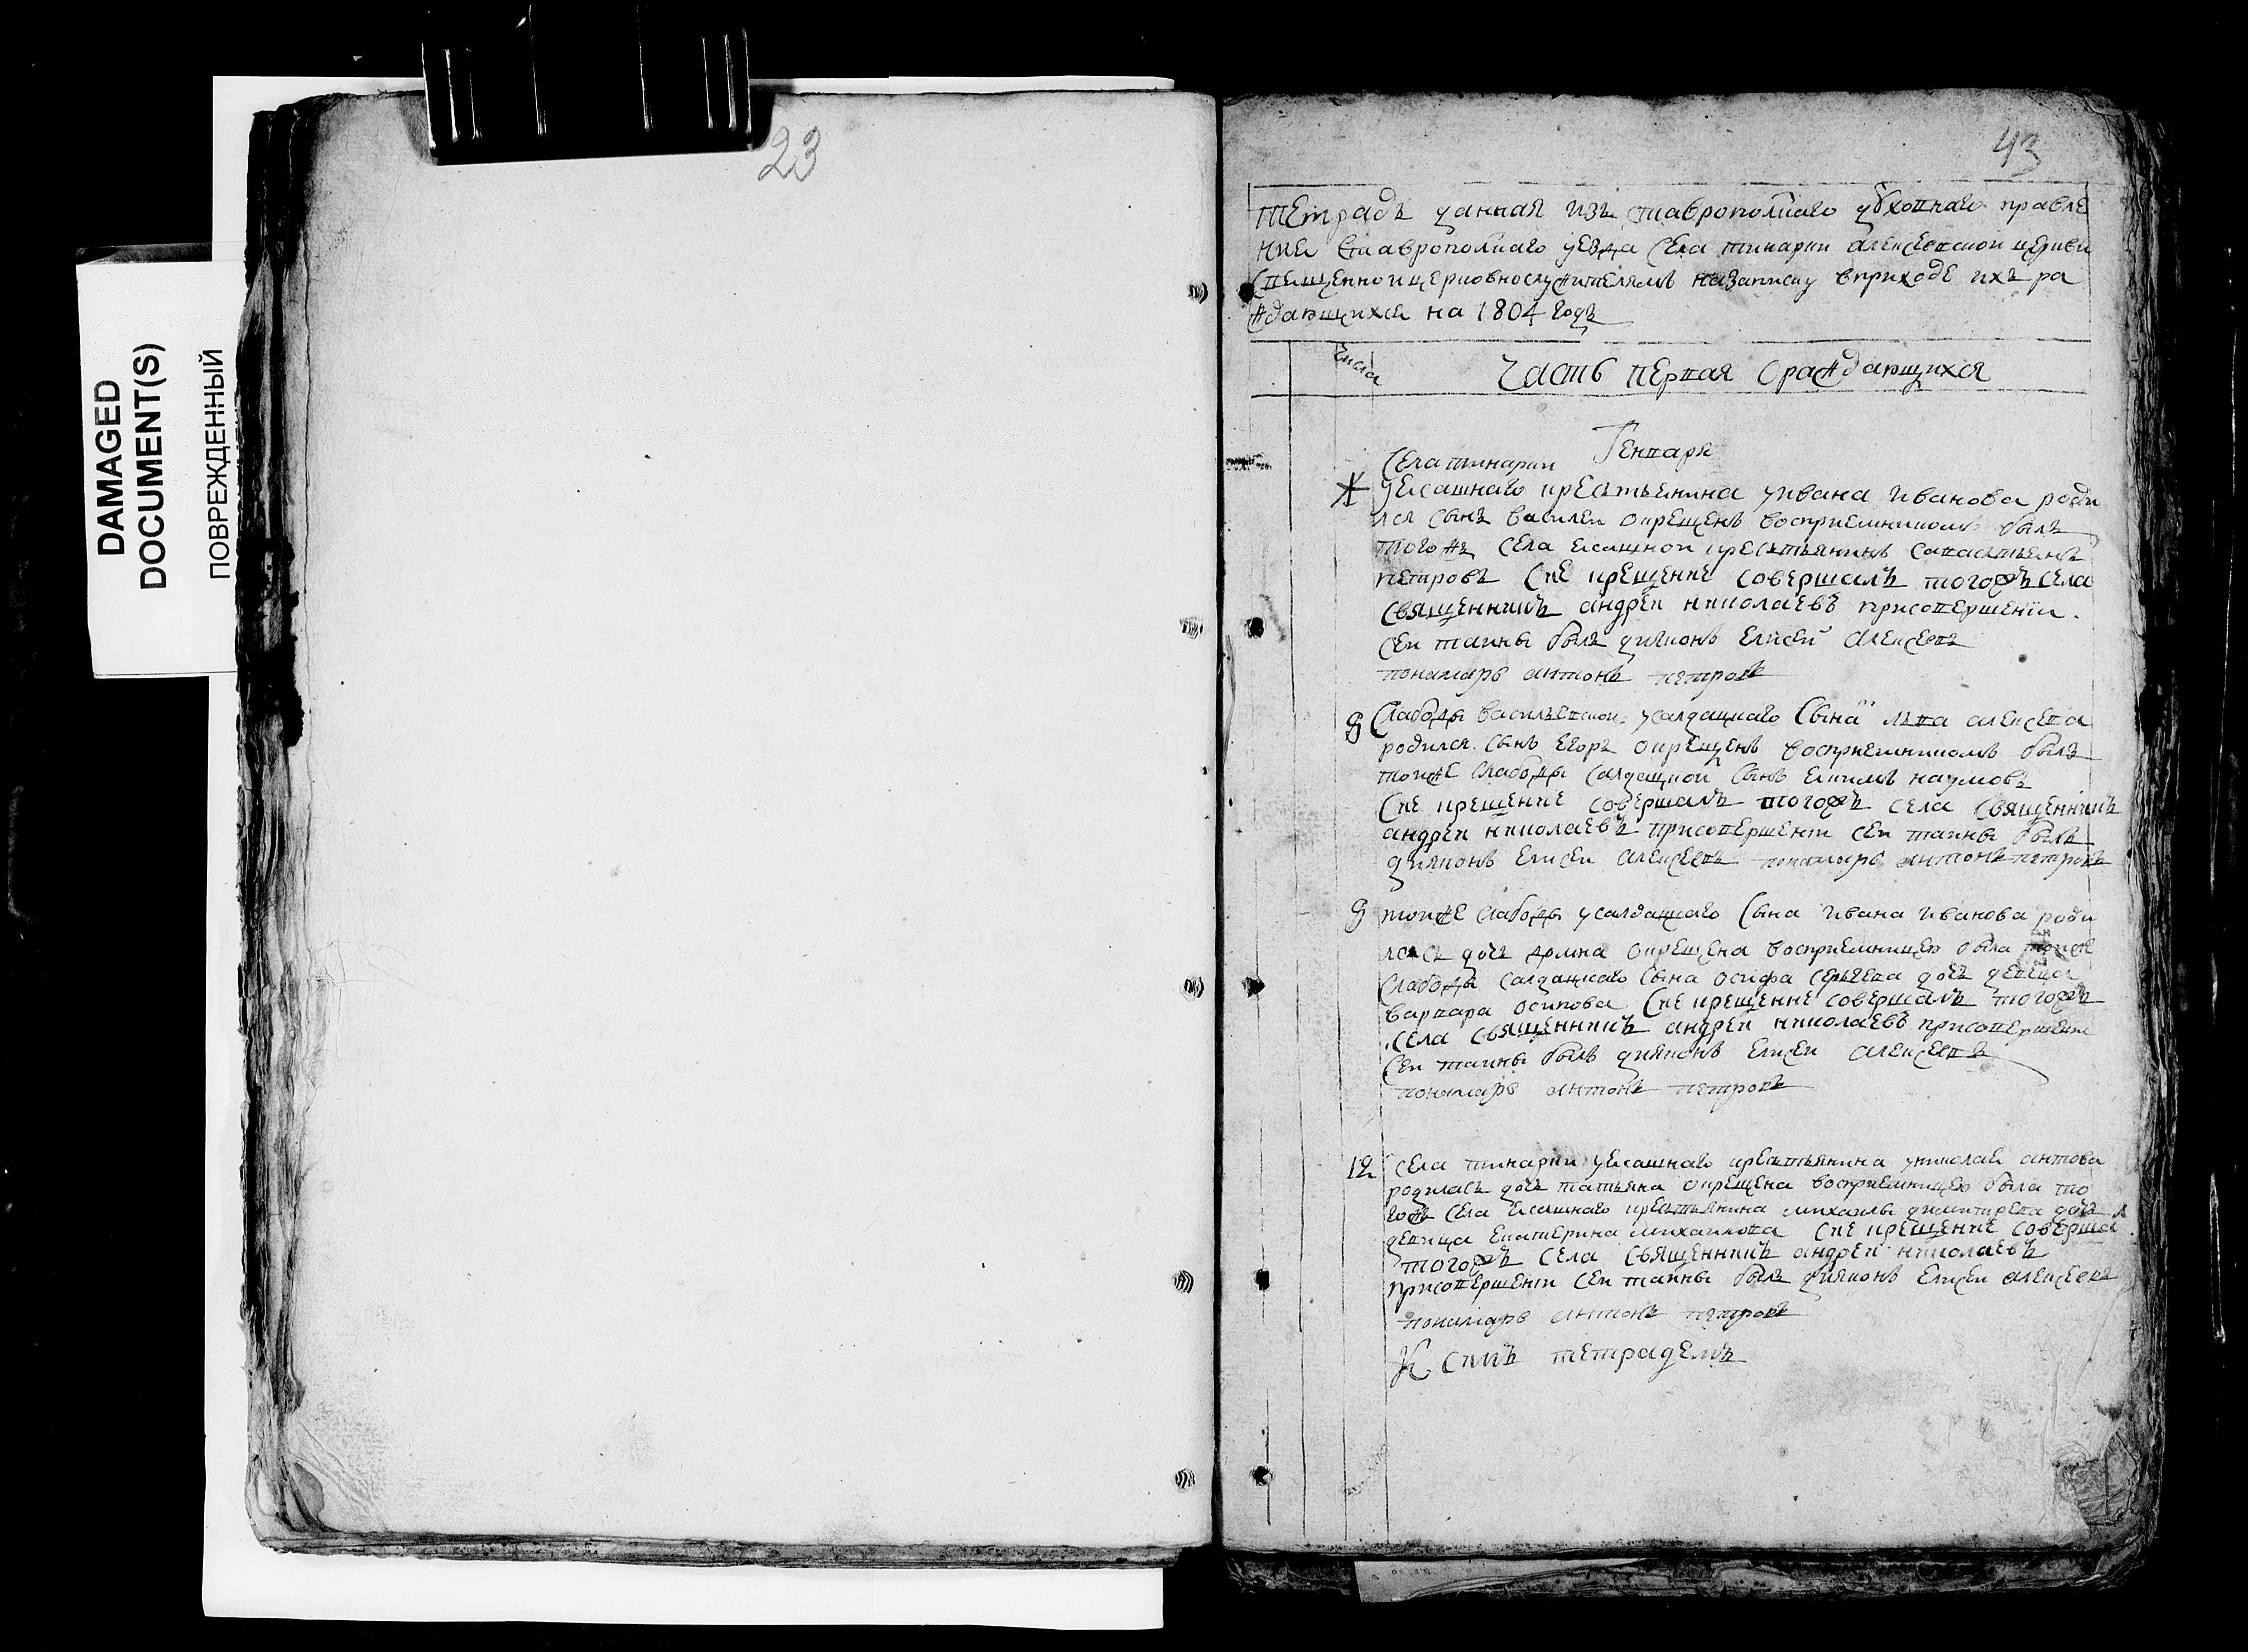 DAMAGED
DOCUMENT(S)
ПОВРЕЖДЕННЫЙ
23
43
тетрадь данная изъ ставрополскаго духовнаго правле
ния ставрополскаго уезда села тинарки алексеевской церкви
священно и церковнослужителямъ на записку вприходе ихъ ра
ждающихся на 1804 годъ
числа
часть первая о раждающихся
Генваря
села тинарки
у ясашнаго крестьянина у ивана иванова роди
лся сынъ василеи окрещенъ восприемникомъ былъ
того жъ села ясашнои крестьянинъ савастьенъ
петровъ сие крещение совершалъ тогожъ села
священникъ андреи николаевъ присовершении
сеи таины былъ диаконъ елисеи алексеевъ
понамарь антонъ петровъ
8 слабоды васильевскои у салдацкаго сына льва алексева
родился сынъ егоръ окрещенъ восприемникомъ былъ
тоиже слабоды салдацкои сынъ екимъ наумовъ
сие крещение совершалъ тогожъ села священникъ
андреи николаевъ присовершени сеи таины былъ
диаконъ елисеи алексеевъ понамарь антонъ петровъ
9 тоиже слабоды у салдацкаго сына ивана иванова роди
лась дочь домна окрещена восприемницею была тоиже
слабоды салдацкаго сына осифа сергеева дочь девица
варвара осипова сие крещение совершалъ тогожъ
села священникъ андреи николаевъ присовершени
сеи таины былъ диаконъ елисеи алексеевъ
понамарь антонъ петровъ
12 села тинарки у ясашнаго крестьянина у николая антова
родилась дочь татьяна окрещена восприемницею была то
гожъ села ясашнаго крестьянина михаилы димитрева дочь
девица екатерина михаилова сие крещение соверша
тогожъ села священникъ андреи николаевъ
присовершени сеи таины былъ диаконъ елисеи алексеевъ
понамарь антонъ петровъ
К симъ тетрадемъ